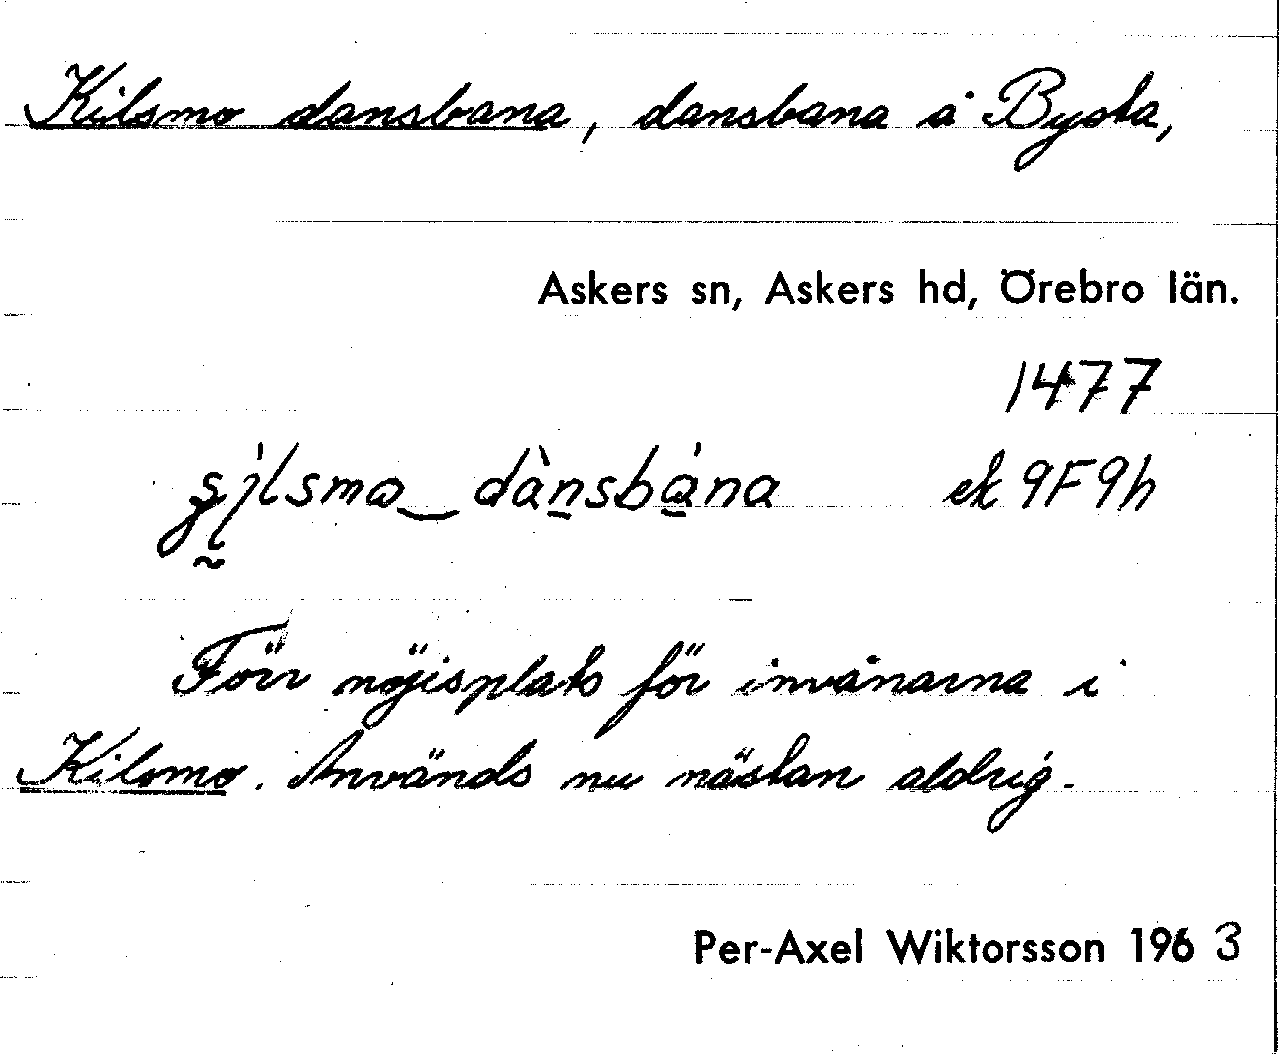 Kilsmo dansbana, dansbana å Bysta,
Askers sn, Askers hd, Örebro län.
1477
dànsbána ek 9F9h
Förr nöjesplats för invånarna i
Kilsmo. Används nu nästan aldrig.
Per-Axel Wiktorsson 1963